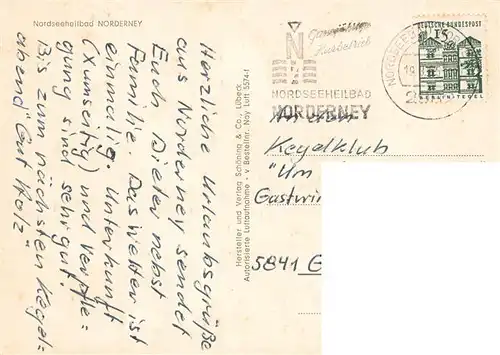 Nordseeheilbad NORDERNEY
Herzliche Urlaubsgrüße
aus Norderney sendet
Euch, Dieter nebst
Familie. Das Wetter ist
einmalig. Unterkunft
(umseitig) und Verpfle=
gung sind sehr gut.
Bis zum nächsten Kegel=
abend "Gut Holz"
Hersteller und Verlag Schöning & Co., Lübeck
Autorisierte Luftaufnahme - v Bestellnr. Ney Luft 5574-1
Ganzjähriger
Kurbetrieb
NORDSEEHEILBAD
NORDERNEY
DEUTSCHE BUNDESPOST
15
BERLIN-TEGEL
An den
Kegelklub
"Um
Gastwir
5841 E